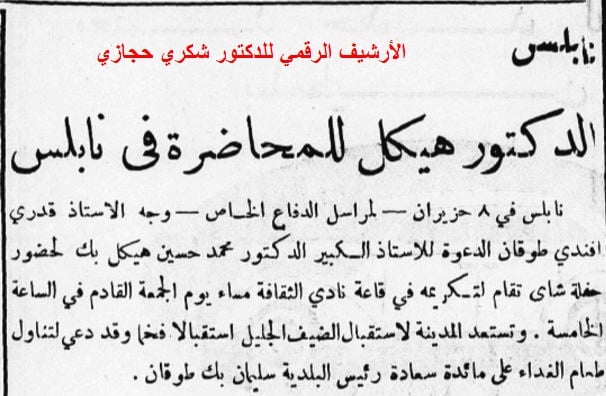 نابلس
الأرشيف الرقمي للدكتور شكري حجازي
الدكتور هيكل للمحاضرة فى نابلس
نابلس في ٨ حزيران — لمراسل الدفاع الخاص — وجه الاستاذ قدري
افندي طوقان الدعوة للاستاذ الكبير الدكتور محمد حسين هيكل بك لحضور
حفلة شاى تقام لتكريمه في قاعة نادي الثقافة مساء يوم الجمعة القادم في الساعة
الخامسة . وتستعد المدينة لاستقبال الضيف الجليل استقبالا فخما وقد دعي لتناول
طعام الغداء على مائدة سعادة رئيس البلدية سليمان بك طوقان .